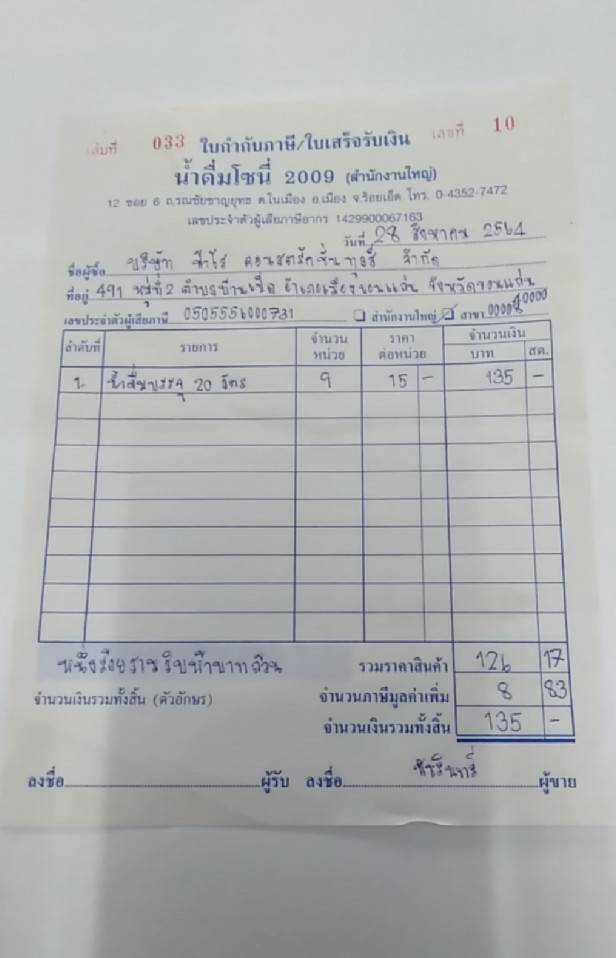 เล่มที่ 033 ใบกำกับภาษี/ใบเสร็จรับเงิน เลขที่ 10
น้ำดื่มโซนี่ 2009 (สำนักงานใหญ่)
12 ซอย 6 ถ.รณชัยชาญยุทธ ต.ในเมือง อ.เมือง จ.ร้อยเอ็ด โทร. 0-4352-7472
เลขประจำตัวผู้เสียภาษีอากร 1429900067163
วันที่ 28 สิงหาคม 2564
ชื่อผู้ซื้อ บริษัท คอนสตรัคชั่น จำกัด
ที่อยู่ 491 หมู่ที่ 2 ตำบลบ้านเป็ด อำเภอเมืองขอนแก่น จังหวัดขอนแก่น 40000
เลขประจำตัวผู้เสียภาษี 0505556000731 สำนักงานใหญ่/ สาขา
ลำดับที่ รายการ จำนวนหน่วย ราคาต่อหน่วย จำนวนเงิน
บาท สต.
1. น้ำดื่มบรรจุ 20 ลิตร 9 15 - 135 -
หนึ่งร้อยสามสิบห้าบาทถ้วน รวมราคาสินค้า 126 17
จำนวนเงินรวมทั้งสิ้น (ตัวอักษร) จำนวนภาษีมูลค่าเพิ่ม 8 83
จำนวนเงินรวมทั้งสิ้น 135 -
ลงชื่อ ผู้รับ ลงชื่อ ผู้ขาย